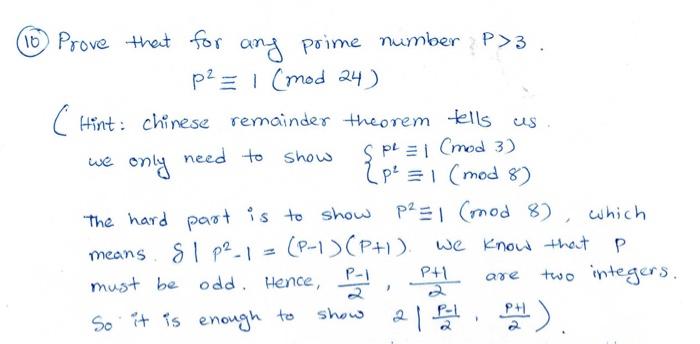 (10) Prove that for any prime number P>3.
P² ≡ 1 (mod 24)
( Hint: chinese remainder theorem tells us.
we only need to show { P² ≡ 1 (mod 3)
{ P² ≡ 1 (mod 8)
The hard part is to show P² ≡ 1 (mod 8), which
means. 8 | P²-1 = (P-1)(P+1). We know that P
must be odd. Hence, (P-1)/2, (P+1)/2 are two integers.
So it is enough to show 2 | (P-1)/2 . (P+1)/2 ).